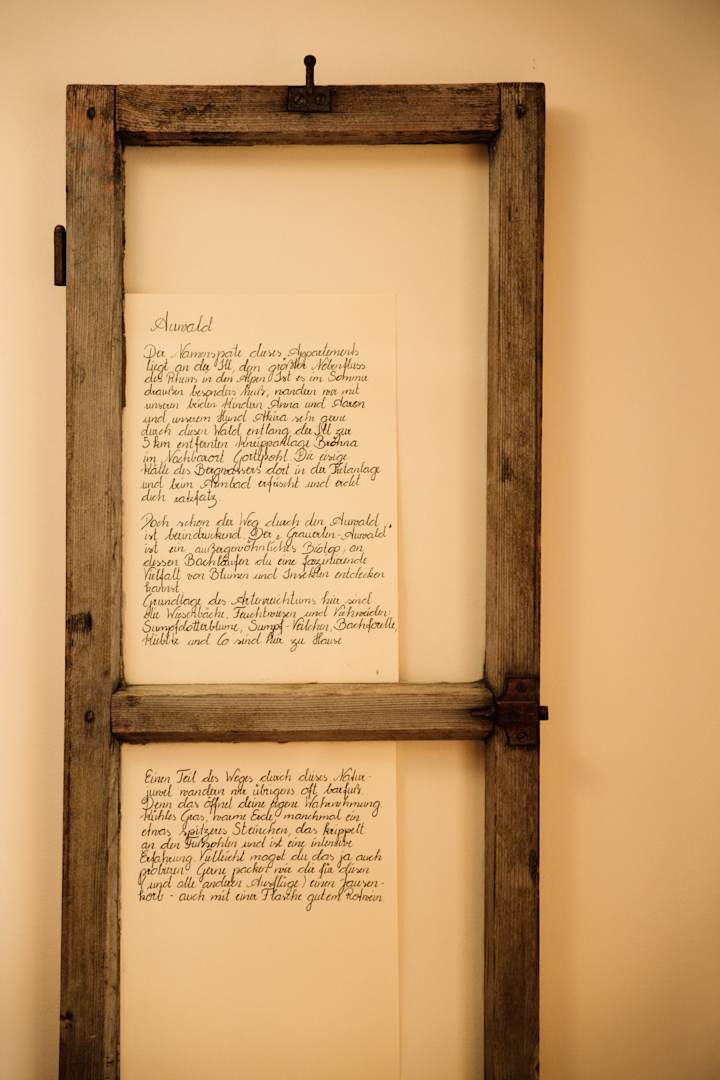 Auwald
Der Namenspate dieses Appartements
liegt an der Ill, dem größten Nebenfluss
des Rheins in den Alpen. Ist es im Sommer
draußen besonders heiß, wandern wir mit
unseren beiden Kindern Anna und Aaron
und unserem Hund Akira sehr gerne
durch diesen Wald entlang der Ill zur
5 km entfernten Kneippanlage Bröhna
im Nachbarort Gortipohl. Die eisige
Kälte des Bergwassers dort in der Tretanlage
und beim Armbad erfrischt und erdet
dich ratzfatz.
Doch schon der Weg durch den Auwald
ist beeindruckend. Der „Grauerlen-Auwald"
ist ein außergewöhnliches Biotop, an
dessen Bachläufen du eine faszinierende
Vielfalt von Blumen und Insekten entdecken
kannst.
Grundlage des Artenreichtums hier sind
die Wiesenbäche, Feuchtwiesen und Viehweiden:
Sumpfdotterblume, Sumpf-Veilchen, Bachforelle,
und Co sind hier zu Hause.
Einen Teil des Weges durch dieses Natur-
juwel wandern wir übrigens oft barfuß.
Denn das öffnet deine eigene Wahrnehmung.
Kühles Gras, warme Erde, manchmal ein
etwas spitzeres Steinchen, das krippelt
an den Fußsohlen und ist eine intensive
Erfahrung. Vielleicht magst du das ja auch
probieren. Gerne packen wir dir für diesen
(und alle anderen Ausflüge) einen Jausen-
korb - auch mit einer Flasche gutem Rotwein.